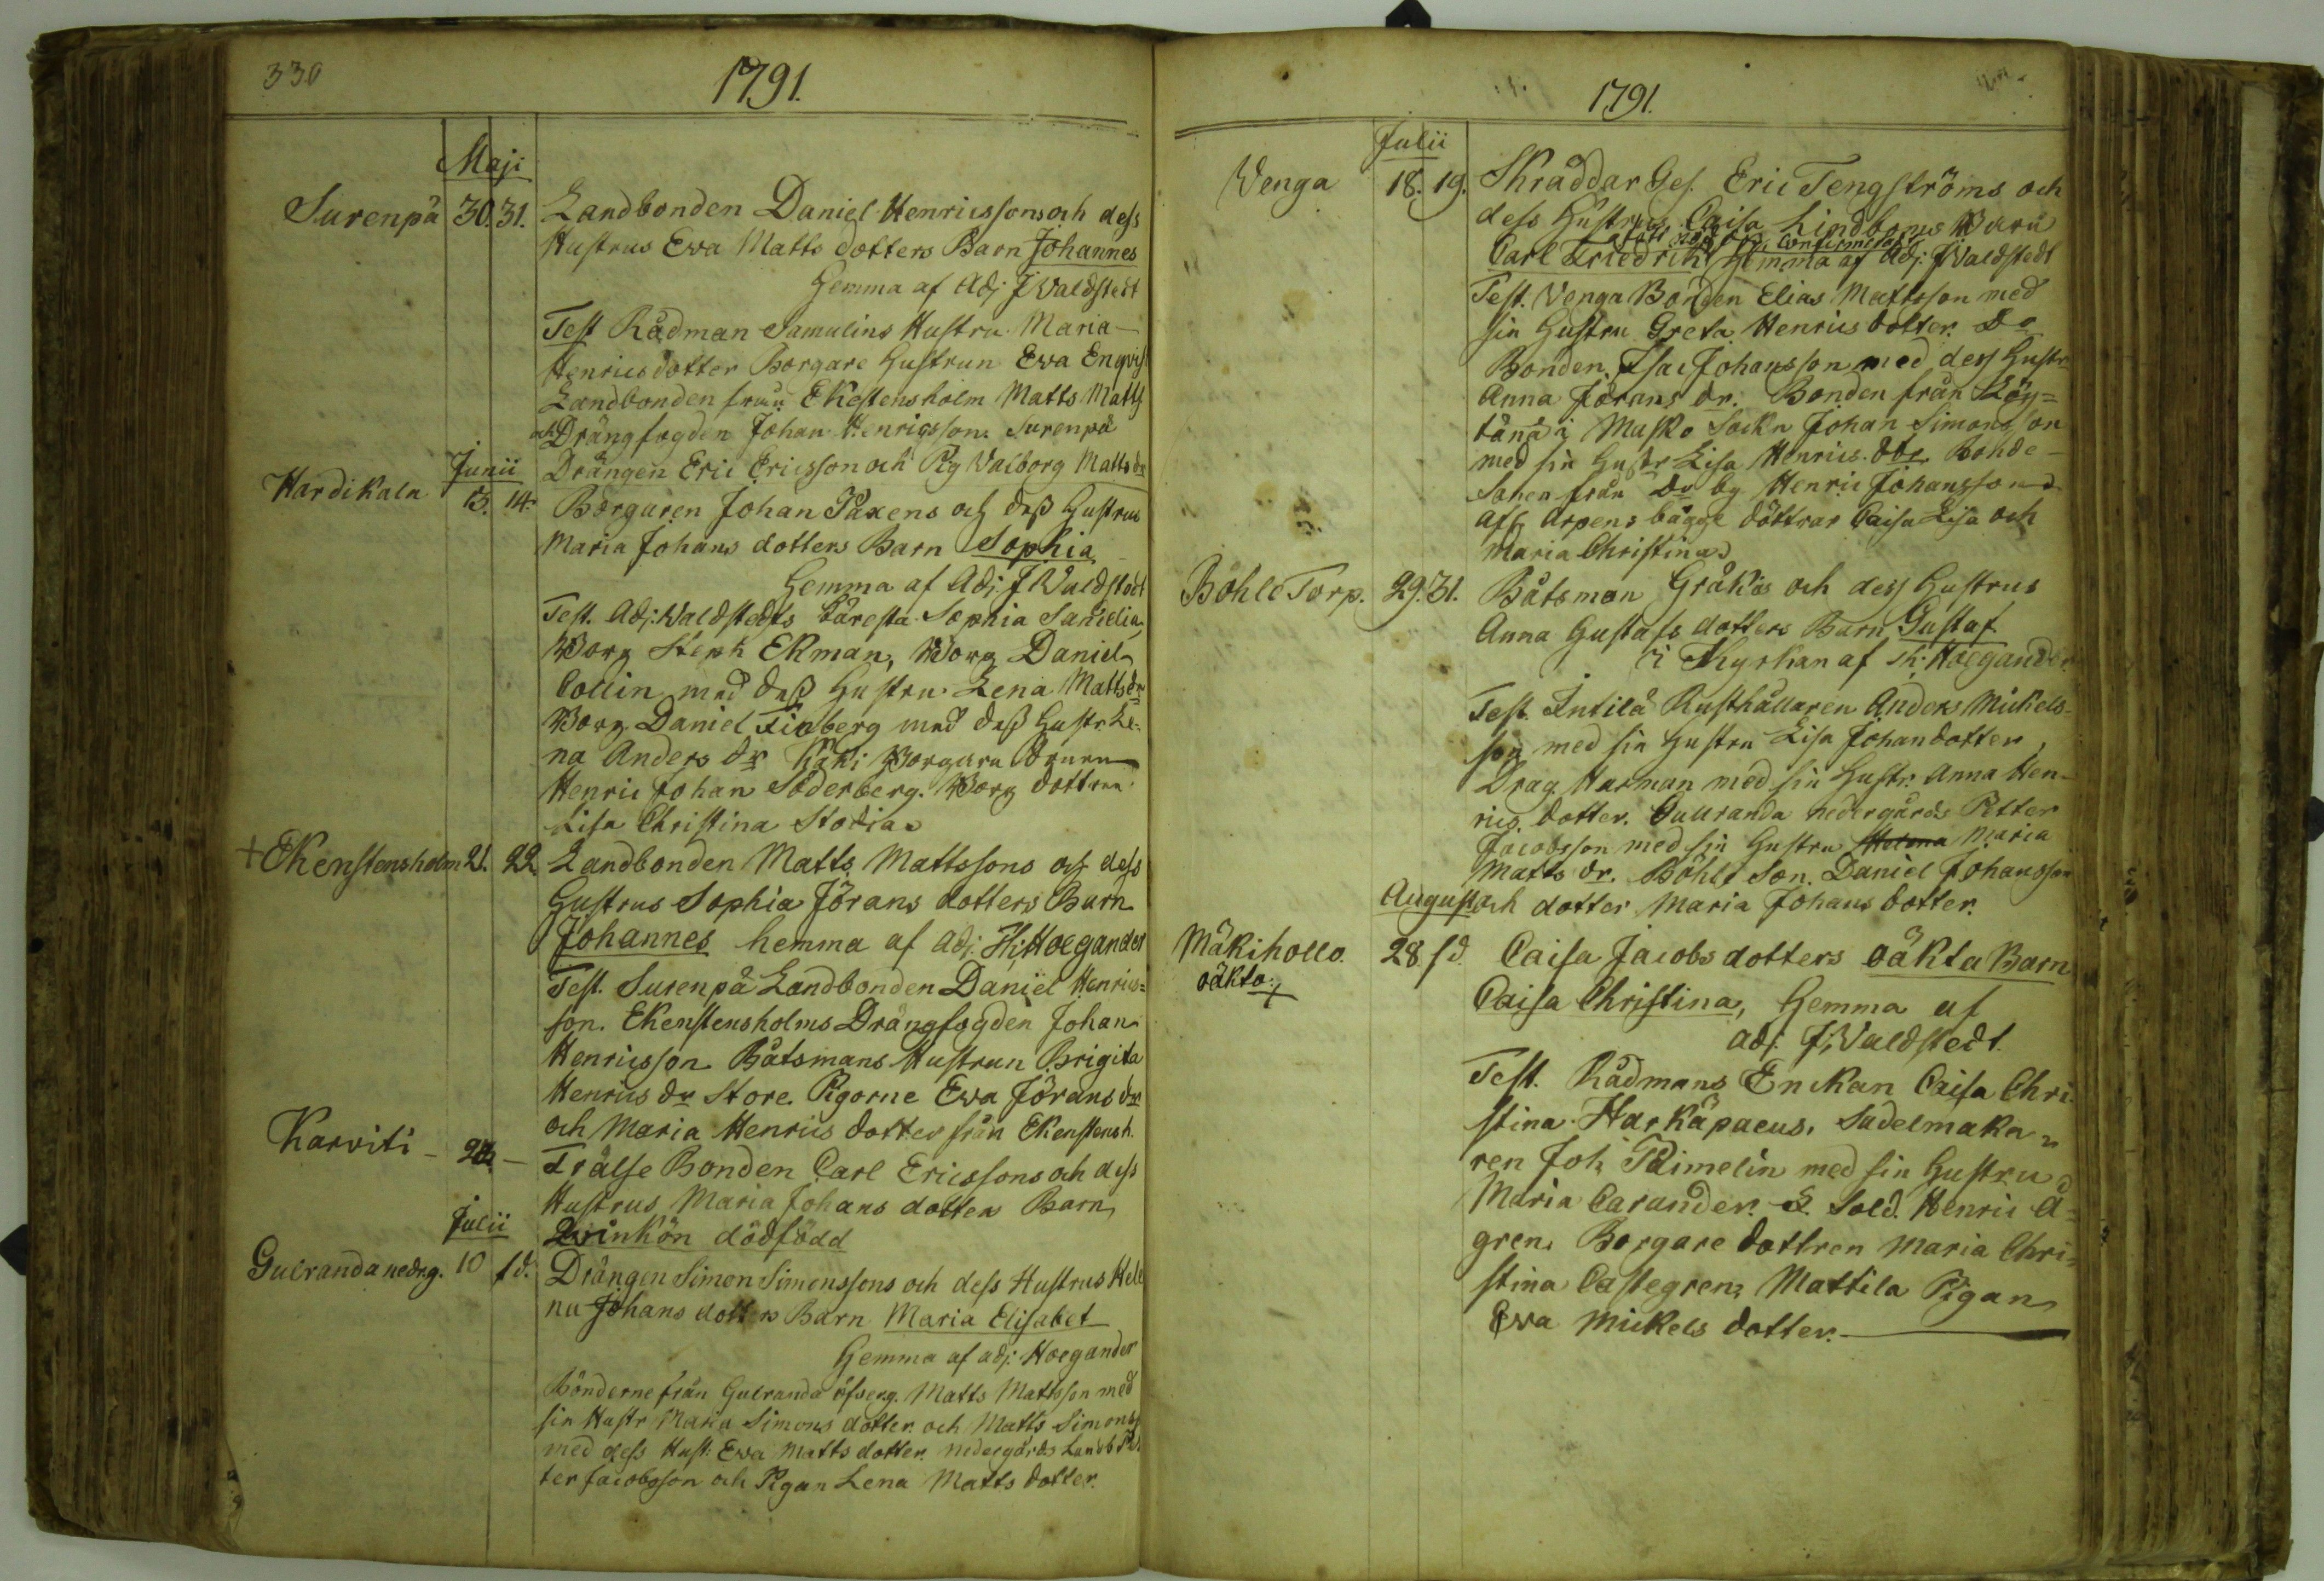 330
1791.
Maji
Surenpä 30. 31. Landbonden Daniel Henricssons och dess
Hustrus Ewa Matts dotters Barn Johannes
Hemma af Adj. J Waldstedt
Test Rådman Samulins Hustru Maria
Henricsdotter Borgare Hustrun Ewa Enqvist
Landbonden från Ekestensholm Matts Matts
och Drängfogden Johan Henricsson. Surenpä
Drängen Eric Ericsson och Pig Walborg Matts dr
Junii
Hardikala 13. 14. Borgaren Johan Paxens och dess Hustrus
Maria Johans dotters Barn Sophia
Hemma af Adj. J Waldstedt
Test. Adj: Waldstedts Käresta Sophia
Borg Steph Ekman, Borg Daniel
Collin med dess Hustru Lena Matts dr
Borg. Daniel Finberg med dess Hustr. Le-
na Anders dr Borgare
Henric Johan Söderberg. Borg dottren
Lisa Christina Stodia
+ Ekenstensholm 21. 22. Landbonden Matts Mattssons och dess
Hustrus Sophia Jörans dotters Barn
Johannes hemma af adj. H: Hoegander
Test. Surenpä Landbonden Daniel Henrics=
son. Ekenstensholms Drängfogden Johan
Henricsson Båtsmans Hustrun Brigita
Henrics dr Store. Pigorne Ewa Jörans dr
och Maria Henrics dotter från Ekenstensh.
Karviti - – Frälse Bonden Carl Ericssons och dess
Hustrus Maria Johans dotters Barn
Qvinkön dödfödd
Julii
Gulranda nedrg. 10 sd. Drängen Simon Simonssons och dess Hustrus Hele
na Johans dotters Barn Maria Elisabet
Hemma af adj: Hoegander
Bönderne från Gulranda öfverg. Matts Mattsson med
sin Hustr Maria Simons dotter och Matts Simonss
med dess Hust: Ewa Matts dotter. nedergårds Landb Pet
ter Jacobsson och Pigan Lena Matts dotter.
1791.
Julii
Venga 18. 19. Skräddar Ges. Eric Tengströms och
dess Hustrus Caisa Lindboms Barn
Carl Friedrik Hemma af Adj. J Waldstedt
Test. Venga Bonden Elias Mattsson med
sin Hustru Greta Henrics dotter. Do
Bonden Isac Johansson med dess Hustr
Anna Jörans dr. Bonden från Köy=
länä i Masko Sockn Johan Simonsson
med sin Hustr Lisa Henrics dotr Bonde-
Sonen från Do by Henric Johansson
Afl. Arpens bägge döttrar Caisa Lisa och
Maria Christina
Böhle Torp. 29. 31. Båtsman Gråkås och dess Hustrus
Anna Gustafs dotters Barn Gustaf
i Kyrkan af H: Hoegander
Test. Intilä Rusthållaren Anders Mickels-
son med sin Hustru Lisa Johansdotter,
Drag Harman med sin Hustr. Anna Hen-
rics dotter. Gulranda nedergårds Petter
Jacobsson med sin Hustru Helena Maria
Matts dr. Böhle Son. Daniel Johansson
Augusti och dotter Maria Johans dotter.
Mäkihollo. 28 sd. Caisa Jacobs dotters oäkta Barn
oäkta: Caisa Christina, Hemma af
adj. J. Waldstedt.
Test. Rådmans Enckan Caisa Chri-
stina Harkäpaeus. Sadelmaka=
ren Joh Päimelin med sin Hustru
Maria Carander. Sold. Henric Å=
gren. Borgare dottren Maria Chri-
stina Castegren, Mattila Pigan
Ewa Mickels dotter.